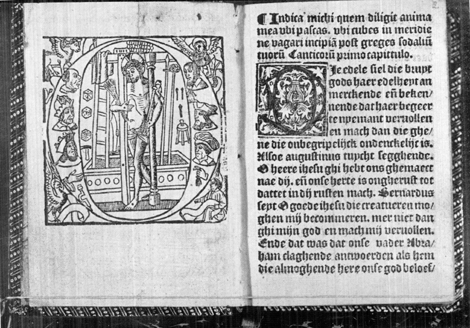 ¶ Indica michi quem diligit anima
mea vbi pascas. vbi cubes in meridie
ne vagari incipiā post greges sodaliū
tuorū Canticorū primo capittulo.
Die edele siel die bruyt
gods haer edelheyt an
merckende eñ beken
nende dat haer begeer
te nyemant vervollen
en mach dan die ghe/
ne die onbegripelijck ondenckelijc is.
Alsoe augustinus tuycht segghende.
O heere ihesu ghi hebt ons ghemaect
nae dij. eñ onse herte is ongherust tot
dattet in dij rusten mach. Bernardus
seyt O goede ihesu die creatueren mo/
ghen mij becommeren. mer niet dan
ghi mijn god en mach mij vervollen.
Ende dat was dat onse vader Abra/
ham claghende antwoerden als hem
die almoghende here onse god beloef/